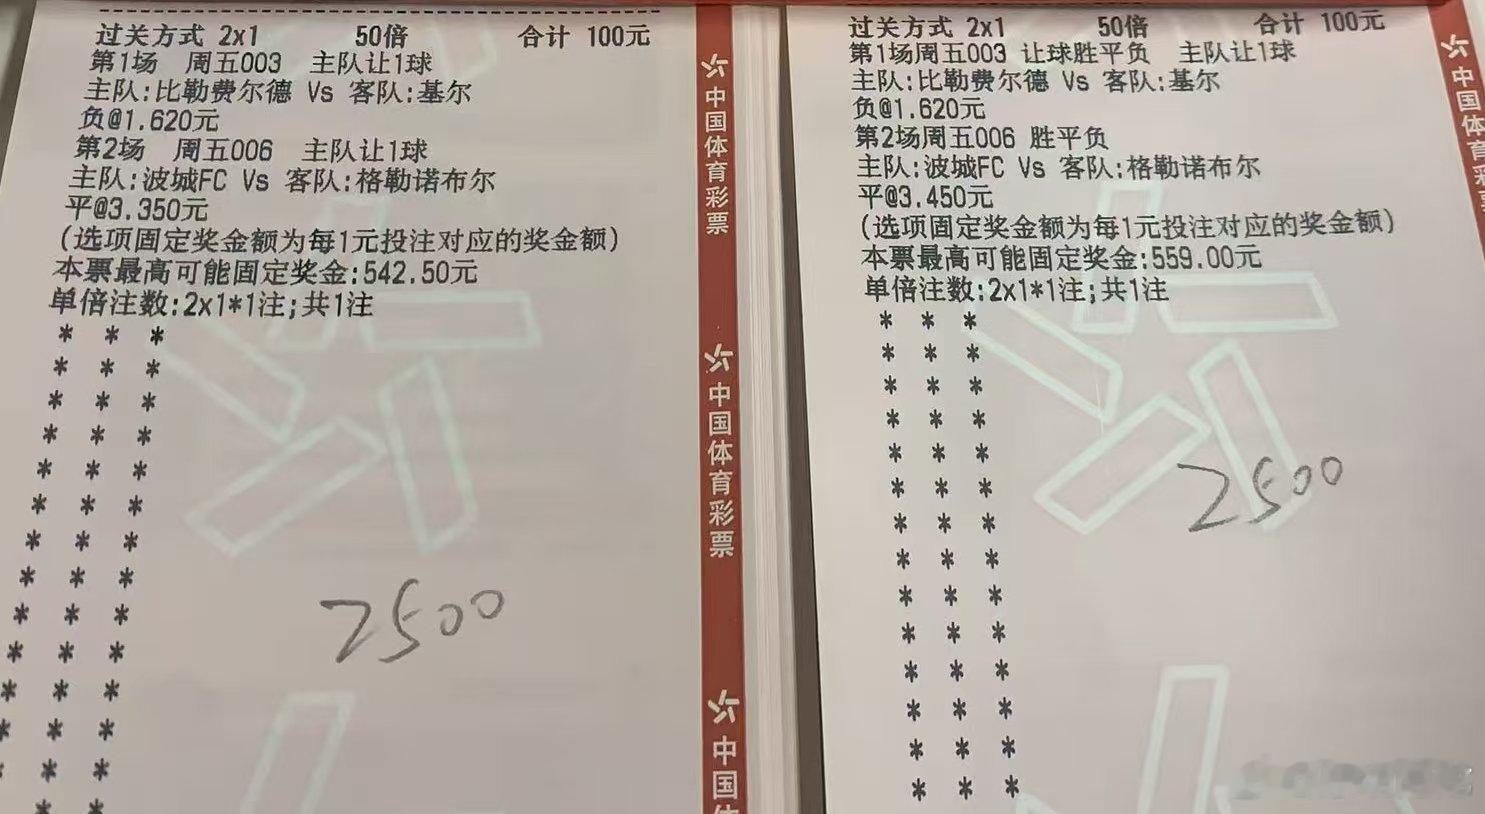 过关方式 2x1 50倍 合计 100元
第1场 周五003 主队让1球
主队:比勒费尔德 Vs 客队:基尔
负@1.620元
第2场 周五006 主队让1球
主队:波城FC Vs 客队:格勒诺布尔
平@3.350元
(选项固定奖金额为每1元投注对应的奖金额)
本票最高可能固定奖金:542.50元
单倍注数:2x1*1注;共1注
* * *
* * *
* * *
* * *
* * *
* * *
* * *
* * *
* * *
* * *
* * *
* * *
* * *
* *
2500
中国体育彩票
中国体育彩票
中国体
过关方式 2x1 50倍 合计 100元
第1场周五003 让球胜平负 主队让1球
主队:比勒费尔德 Vs 客队:基尔
负@1.620元
第2场周五006 胜平负
主队:波城FC Vs 客队:格勒诺布尔
平@3.450元
(选项固定奖金额为每1元投注对应的奖金额)
本票最高可能固定奖金:559.00元
单倍注数:2x1*1注;共1注
* * *
* * *
* * *
* * *
* * *
* * *
* * *
* * *
* * *
* * *
* * *
* * *
* * *
* * *
2500
中国体育彩票